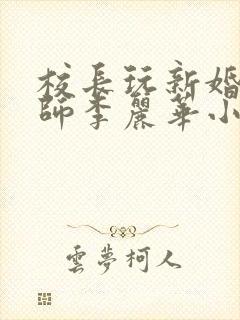 校長玩新婚
師李麗華小
雲夢柯人